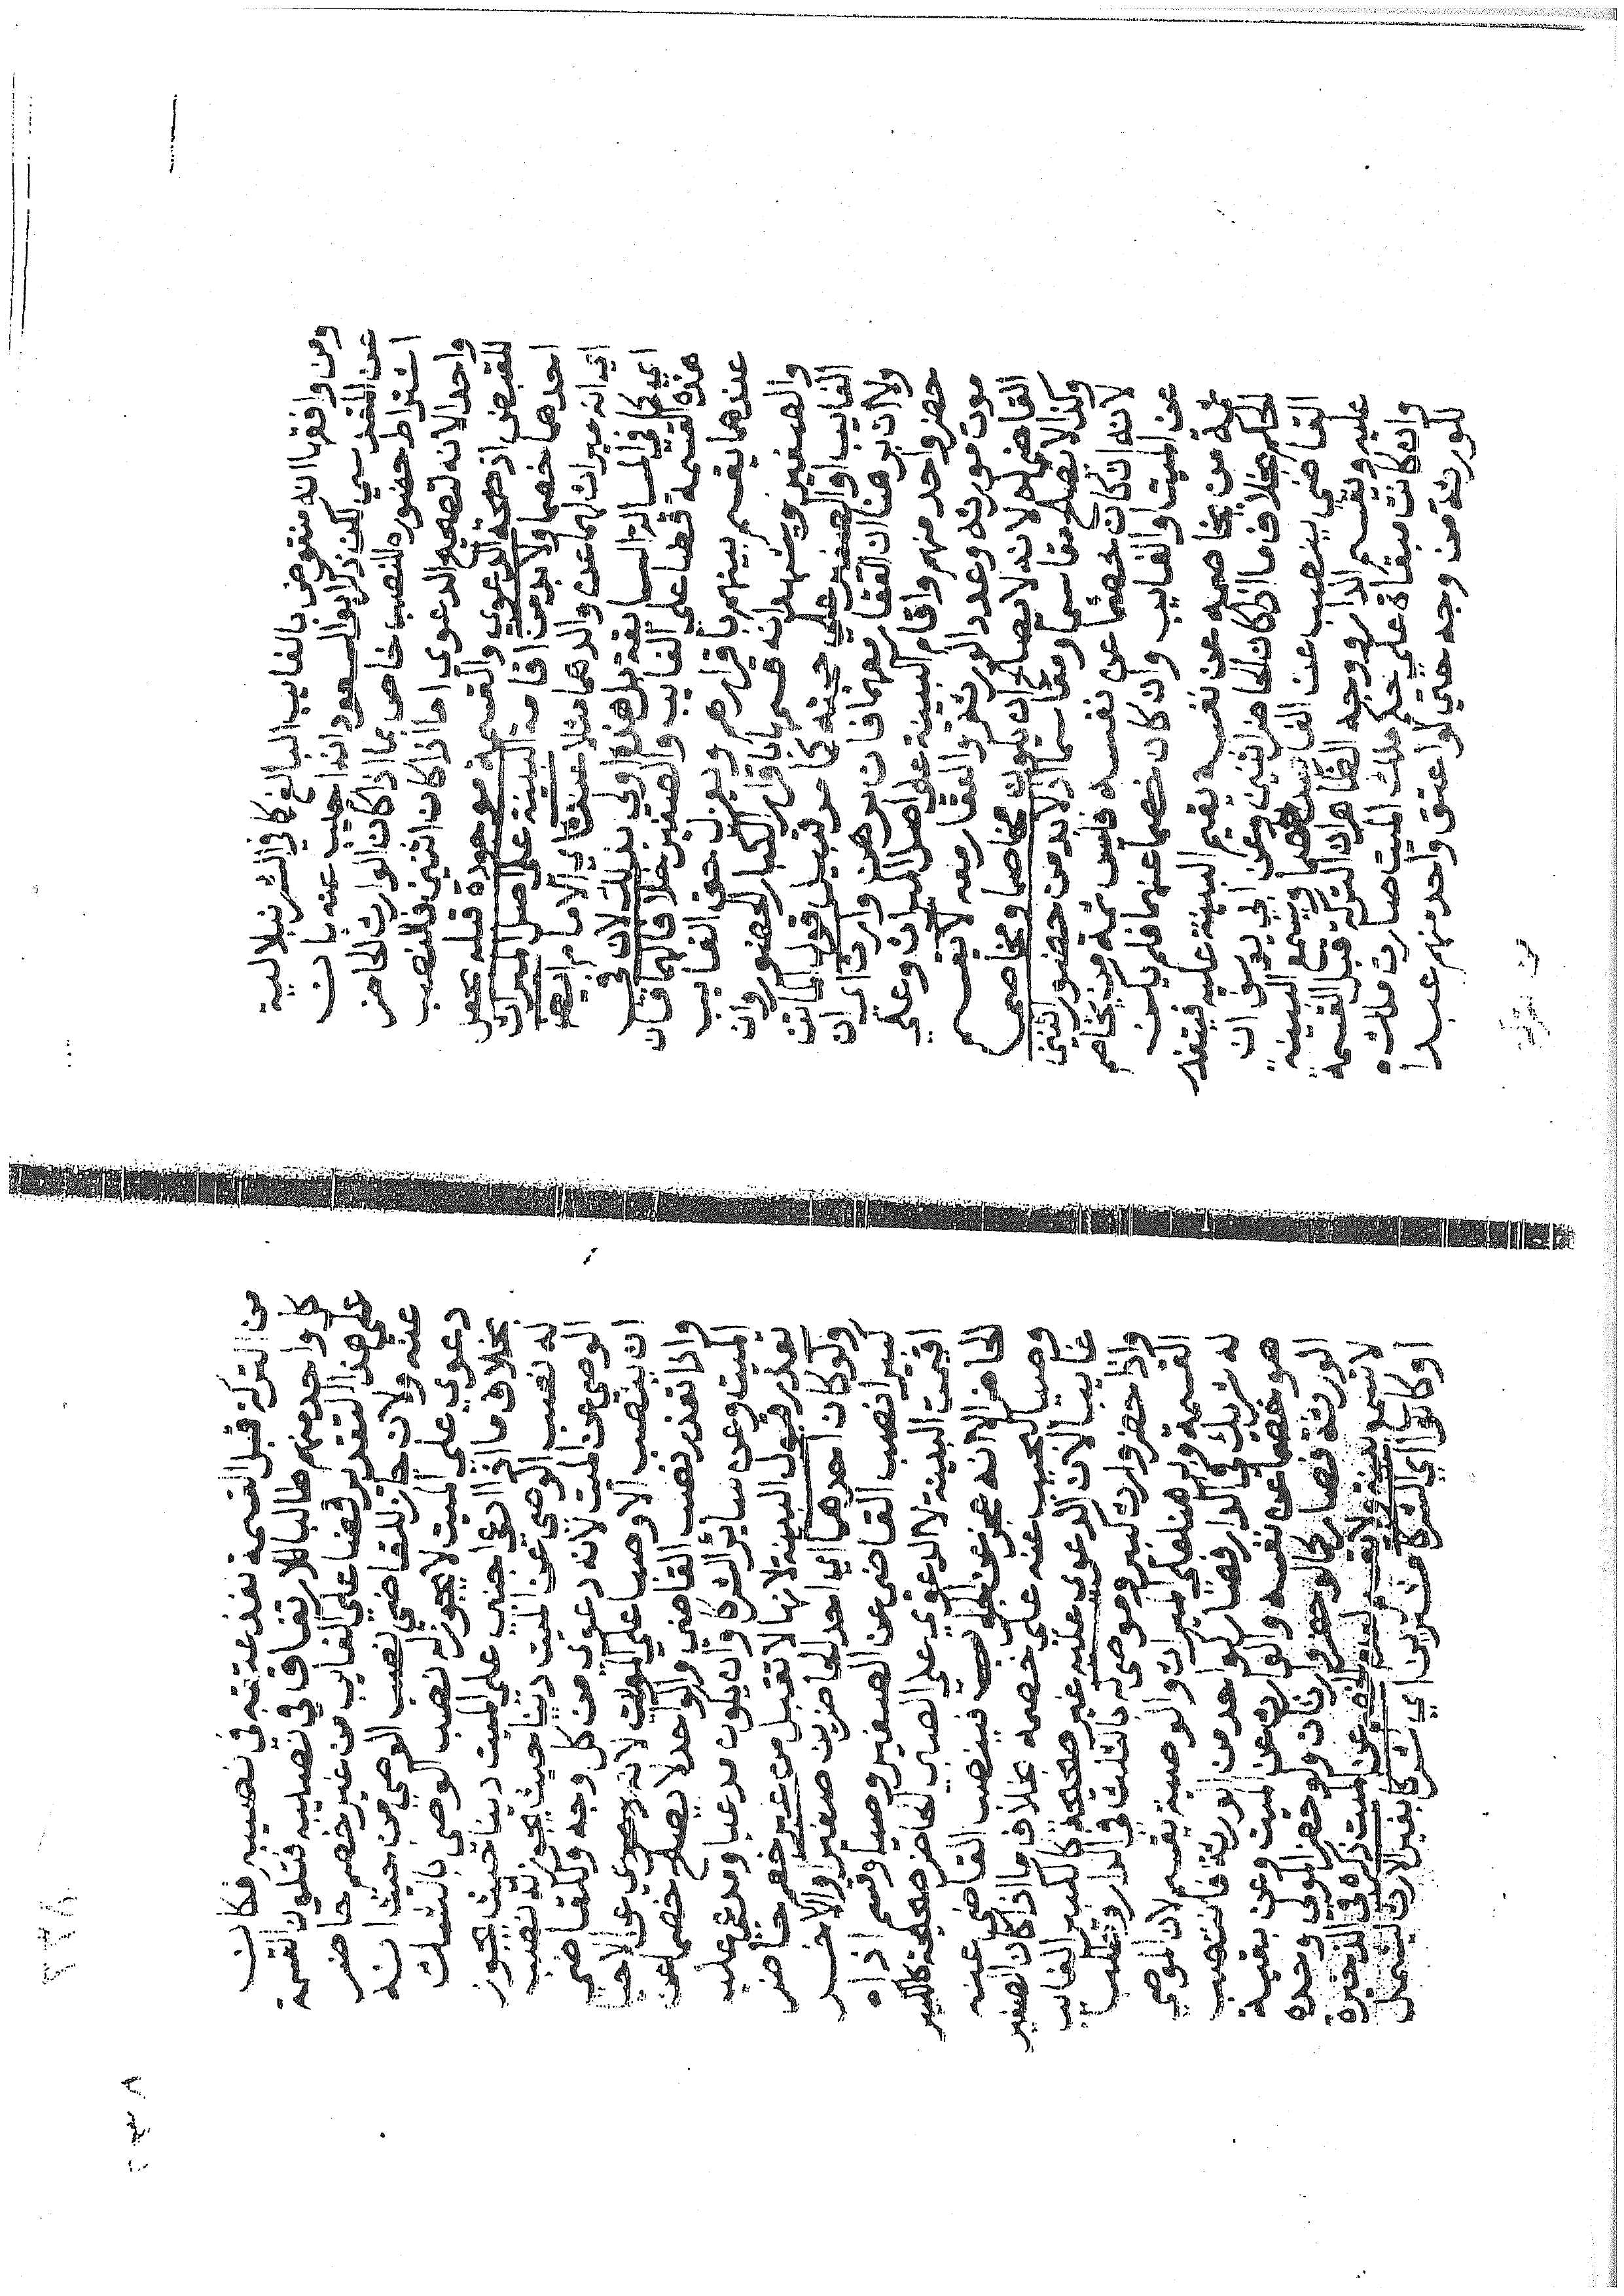 ومن وافقها انه منقوض بالغايب البالغ كما في الشرنبلالية
عن المقدسي لكن ذكر ابو السعود انه اجيب عنه بان
اشتراط حضوره للنصب خاص بما اذا كان الوارث الحاضر
واحد الانه لتصحيح الدعوى اما اذا كان اثنين فللنصب
للقبض اذ صحة الدعوى والقسمة موجودة قبله بجعل
احدهما خصما ولا بد من اقامة البينة على اصل الميراث
اي انه ميراث لهما عن والدهما مثلا عنده اي الامام ايضا
اي كما في المسالة السابقة بل هذه اولى بذلك لان في
هذه القسمة قضا على الغايب والصغير خلافا لهما فان
عندهما يقسم بينهم باقرارهم ويعزل حق الغايب
والصغير ويشهد انه قسم باقرار الكبار الحضور وان
الغايب او الصغير على حجته كما مر قبيل قول الماتن
ولا ان برهنا ان العقار معهما فان برهن وارث اي ان
حضر واحد منهم واقام البينة على اصل الميراث وعلى
موت مورثه وعدد الورثة والعقار معه لا يقسم
القاضي له لانه لا يصلح ان يكون مخاصما ومخاصمى
وكذا لا يصلح مقاسما ومقاسما اذ لا بد من حضور اثنين
لانه ان كان خصما عن نفسه فليس ثمة من يخاصم
عن الميت والغايب وان كان خصما عنهما فلم يكن
ثمة من يخاصمه عن نفسه يقيم البينة عليه فيتعذر
الحكم بخلاف ما اذا كان الحاضر اثنين وعن ابي يوسف ان
القاضي ينصب عن الغايب خصما ويسمع البينة
عليه ويقسم الدار ووجه الظاهر ان التركة قبل القسمة
وان كانت مبقاة على حكم ملك الميت صارت ملك
للورثة من وجه حتى لو اعتق واحد منهم عبدا
من التركة قبل القسمة نفذ عتقه في نصيبه فكان
كل واحد منهم طالبا للارتفاق في نصيبه فتكون القسمة
على هذا التقدير قضا على الغايب من غير خصم حاضر
عنه ولان جاز للقاضي نصب الوصي من حيث انه
دعوى على الميت لا يجوز له نصب الوصي بالشك
بخلاف ما اذا ادعى اجنبي على الميت دينا حيث يجوز
له نصب الوصي عن الميت دينا حيث يجوز له نصب
الوصي عن الميت لانه دعوى من كل وجه وللقاضي
ان ينصب الاوصيا على الموت لانه دعوى على الاجنبي
واذا تعذر نصب القاضي والواحد لا يصلح خصما عن
الميت وعن سائر الشركا وان يكون مدعيا ومدعى عليه
تعذر قبول البينة لانها لا تقبل من غير خصم حاضر
ولو كان احدهما اي احد الحاضرين صغيرا والاخر
كبيرا نصب القاضي عن الصغير وصيا وقسم اذا
اقيمت البينة لا الدعوى على الصبي الحاضر صحيحة كالكبير
الحاضر الا انه عجز عن الجواب فينصب القاضي عنه
وصيا ليجيب عنه على خصمه بخلاف ما اذا كان الصغير
غايبا لان الدعوى عليه غير صحيحة كالكبير الغايب
واذا حضر وارث كبير وموصى له بالثلث في الدار وطلب
القسمة وبرهنا على الميراث والوصية تقسم لان الموصى
له شريك في الدار فصار كواحد من الورثة فانتصب
هو خصما عن نفسه والوارث عن الميت وعن بقية
الورثة فصار كما لو حضر وارثان ولو حضر الموصى وحده
لا تسمع بينته ولا تقسم لعدم الخصم عن الميت ذكره في الذخيرة
او كانوا اي الشركا مشترين اي شركا بغير الارث ليشمل